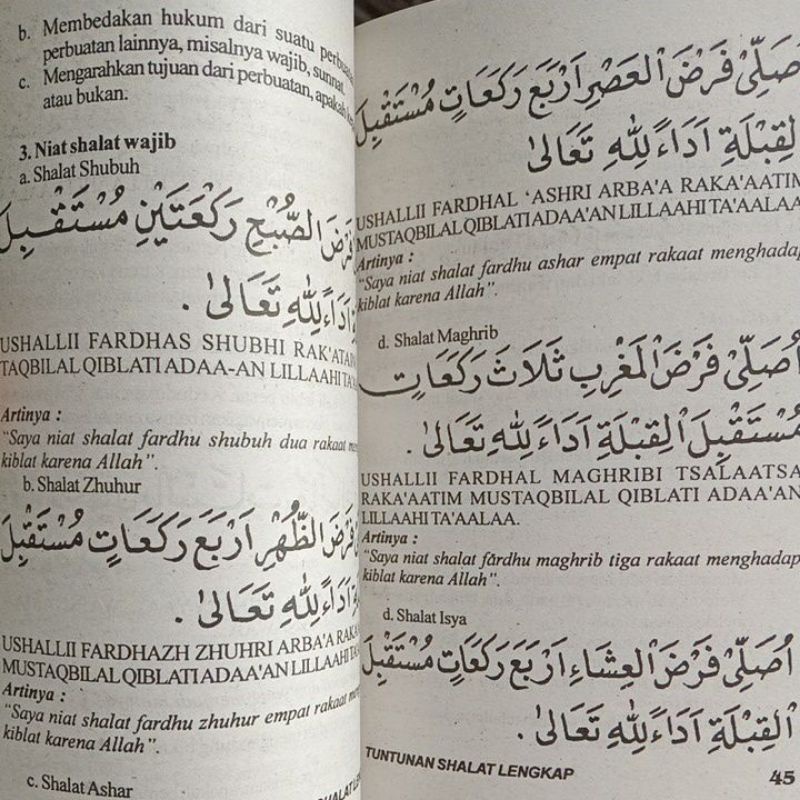 b. Membedakan hukum dari suatu
perbuatan lainnya, misalnya wajib, sunnat
c. Mengarahkan tujuan dari perbuatan, apakah
atau bukan.
3. Niat shalat wajib
a. Shalat Shubuh
فَرْضَ الصُّبْحِ رَكْعَتَيْنِ مُسْتَقْبِلَ
اَدَاءً لِلّٰهِ تَعَالٰى .
USHALLII FARDHAS SHUBHI RAK'ATAI
TAQBILAL QIBLATI ADAA-AN LILLAAHI TA'A
Artinya :
"Saya niat shalat fardhu shubuh dua rakaat
kiblat karena Allah".
b. Shalat Zhuhur
فَرْضَ الظُّهْرِ اَرْبَعَ رَكَعَاتٍ مُسْتَقْبِلَ
اَدَاءً لِلّٰهِ تَعَالٰى .
USHALLII FARDHAZH ZHUHRI ARBA'A RAKA
MUSTAQBILAL QIBLATI ADAA'AN LILLAAHI TA
Artinya :
"Saya niat shalat fardhu zhuhur empat rakaat
kiblat karena Allah".
c. Shalat Ashar
اُصَلِّيْ فَرْضَ الْعَصْرِ اَرْبَعَ رَكَعَاتٍ مُسْتَقْبِلَ
الْقِبْلَةِ اَدَاءً لِلّٰهِ تَعَالٰى
USHALLII FARDHAL 'ASHRI ARBA'A RAKA'AATIM
MUSTAQBILAL QIBLATI ADAA'AN LILLAAHI TA'AALAA
Artinya :
"Saya niat shalat fardhu ashar empat rakaat menghadap
kiblat karena Allah".
d. Shalat Maghrib
اُصَلِّيْ فَرْضَ الْمَغْرِبِ ثَلَاثَ رَكَعَاتٍ
مُسْتَقْبِلَ الْقِبْلَةِ اَدَاءً لِلّٰهِ تَعَالٰى .
USHALLII FARDHAL MAGHRIBI TSALAATSA
RAKA'AATIM MUSTAQBILAL QIBLATI ADAA'AN
LILLAAHI TA'AALAA.
Artinya :
"Saya niat shalat fardhu maghrib tiga rakaat menghadap
kiblat karena Allah".
d. Shalat Isya
اُصَلِّيْ فَرْضَ الْعِشَاءِ اَرْبَعَ رَكَعَاتٍ مُسْتَقْبِلَ
الْقِبْلَةِ اَدَاءً لِلّٰهِ تَعَالٰى .
TUNTUNAN SHALAT LENGKAP 45